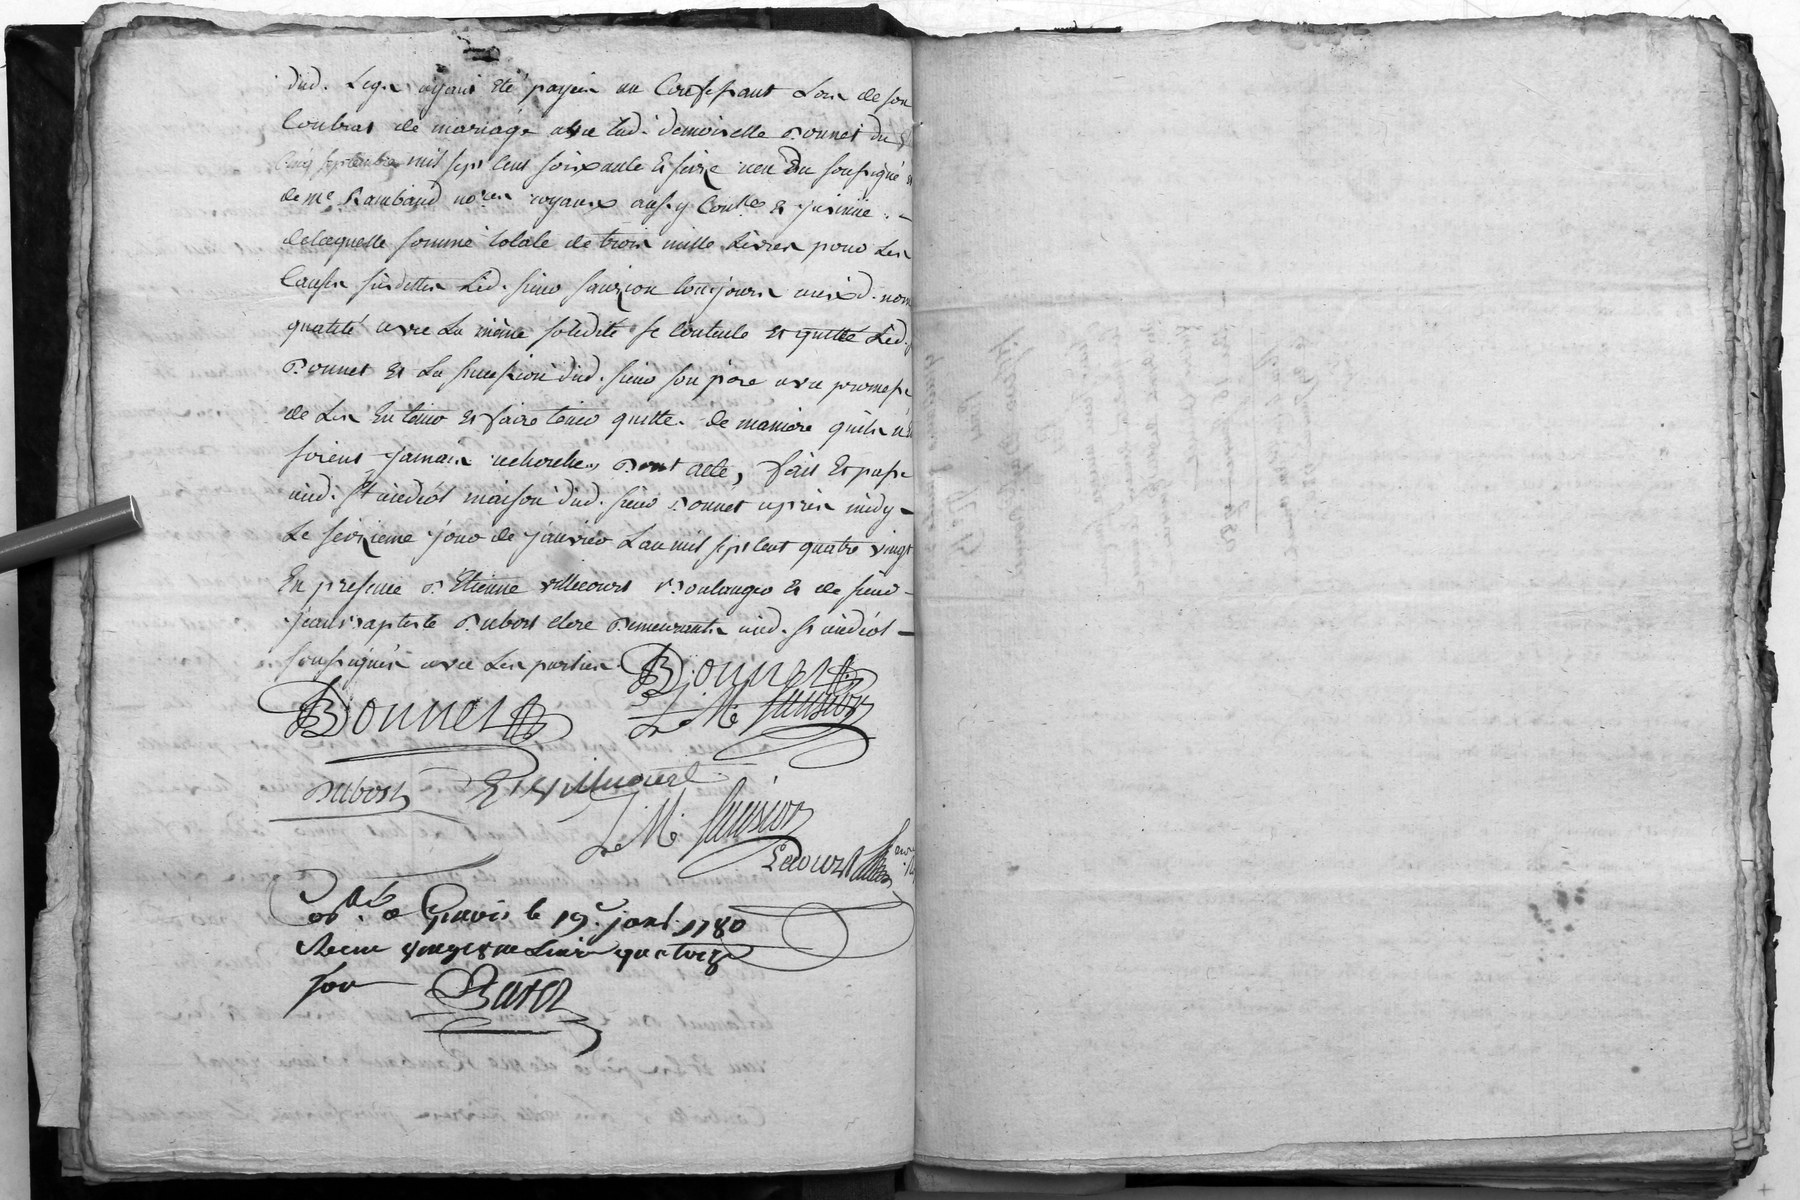 dud. Legs ayant eté payés au Confessant Lors de son
Contrat de mariage avec lad. demoiselle Bonnet du
cinq septembre mil sept cent soixante et seize reçu du soussigné et
de Me Rambaud nores royaux aussy Contlés et jnsinüé. -
delaquelle somme totale de trois mille Livres pour Les
Causes susdittes Led. sieur Sauzion toujours auxd. noms
qualité avec La même solidité se contente et quitte Led.
Bonnet et La succession dud. sieur son pere avec promesse
de Les En tenir et faire tenir quitte. de maniere quils n'en
soient jamais recherchés Dont acte, fait Et passé
aud. St andéol maison dud. sieur Bonnet après midy -
Le seizieme jour de janvier L'an mil sept cent quatre vingt
En presence d'Etienne villecourt Boulanger et de sieur -
jean Baptiste Dubost clerc Demeurants aud. St andéol -
soussignés avec Les parties. Bonnet
Bonnet L. M. Sauzion
Dubost Et villecourt
L. M. Sauzion
Conlé a Givors le 19e janv. 1780
Recu vingt et une Livres quatorze
sou